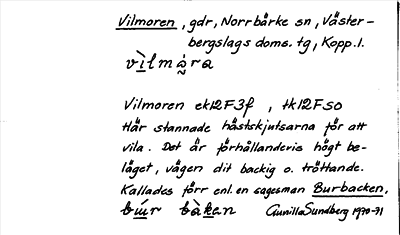 Vilmoren, gdr, Norrbärke sn, Väster-
bergslags doms. tg, Kopp. l.
vìlmåra
Vilmoren ek12F3f, tk12FSO
Här stannade hästskjutsarna för att
vila. Det är förhållandevis högt be-
läget, vägen dit backig o. tröttande.
Kallades förr enl. en sagesman Burbacken,
bùr bàken Gunilla Sundberg 1970-71